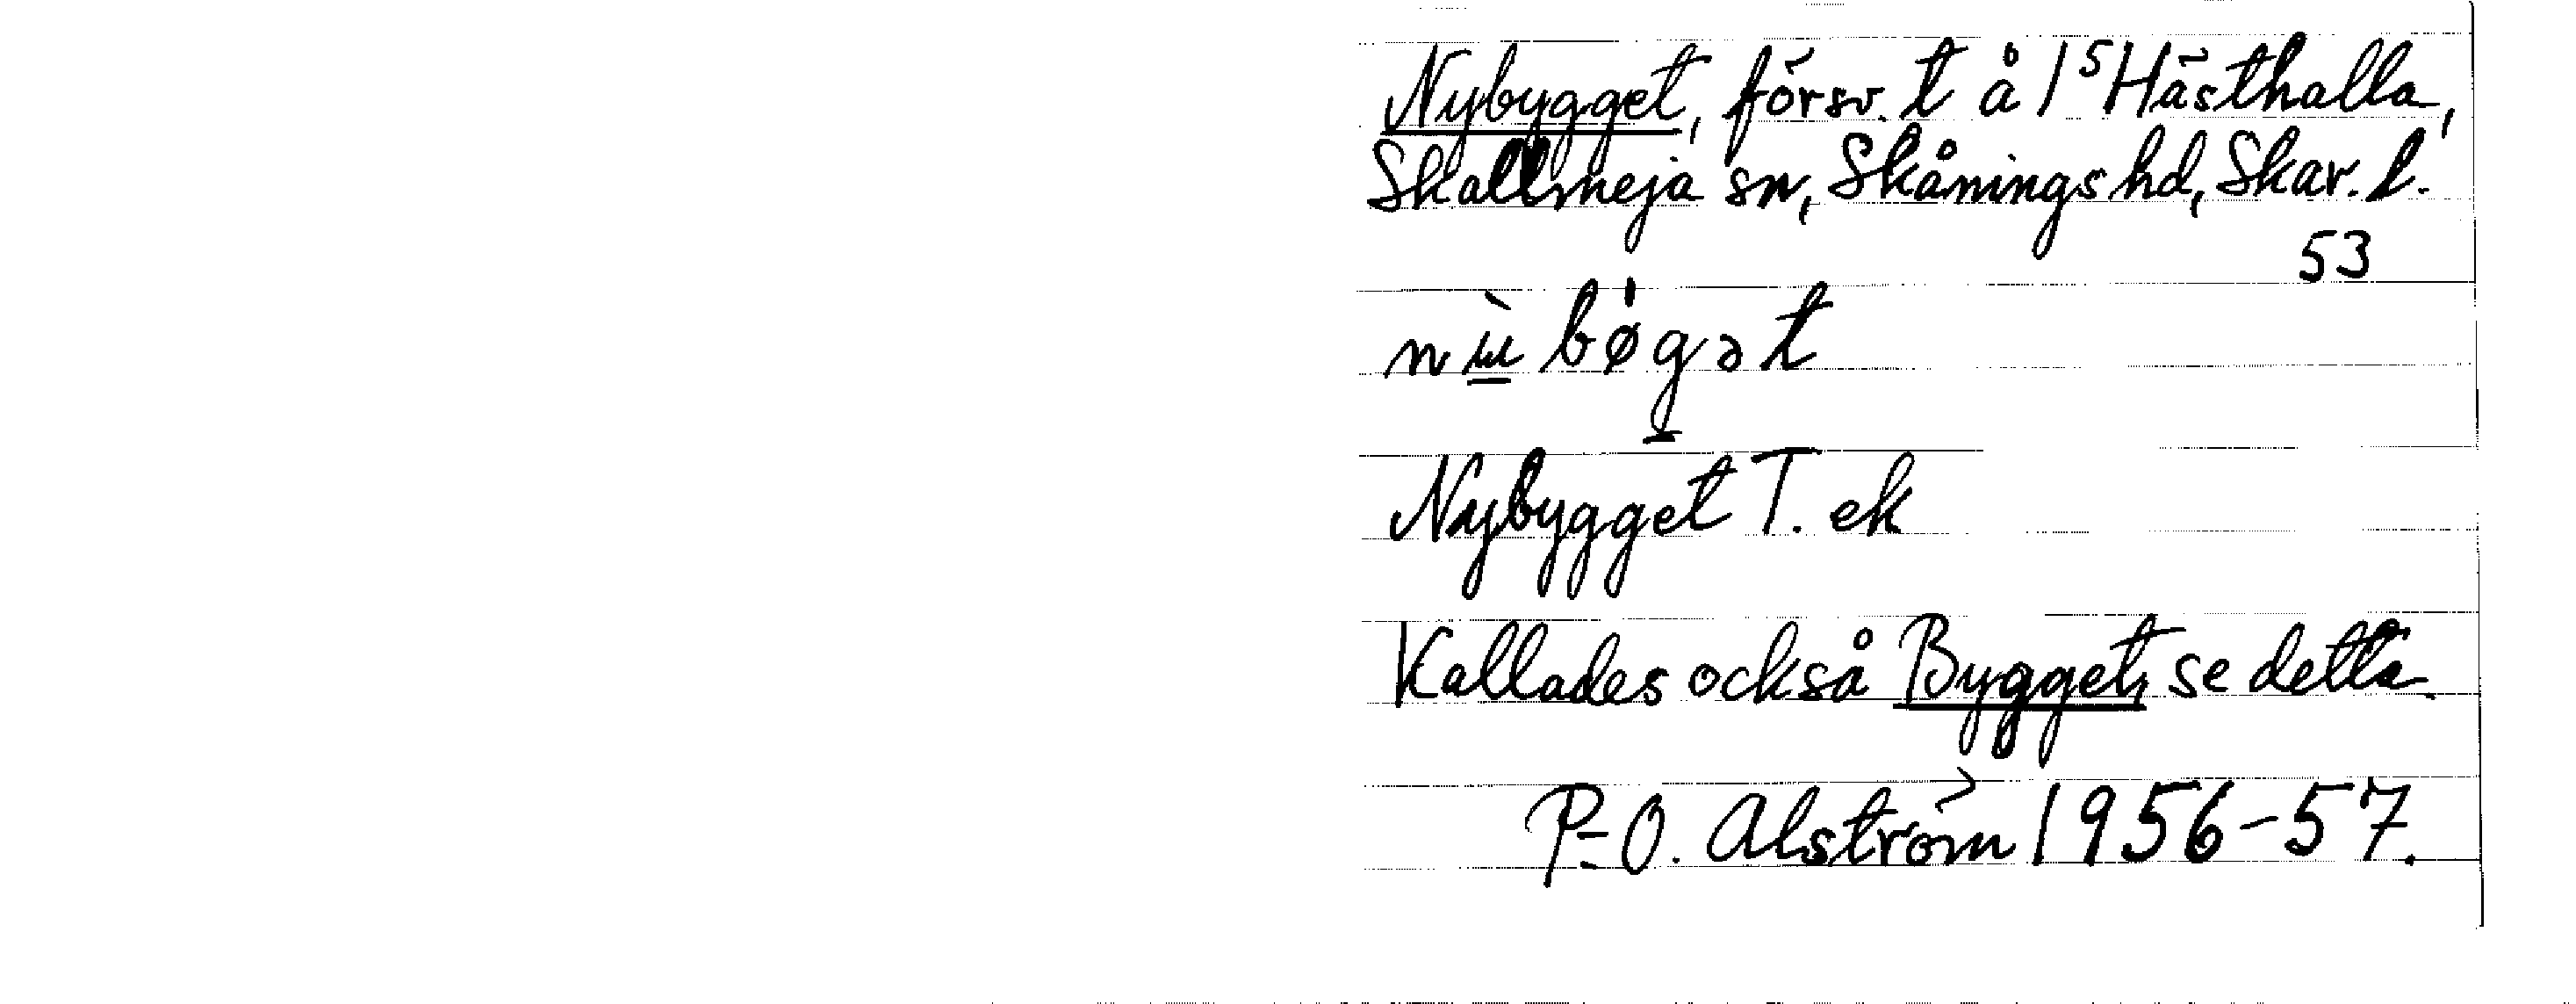 Nybygget, försv. t å 1⁵ Hästhalla,
Skallmeja sn, Skånings hd, Skar. l.
53
Nybygget T. ek
Kallades också Bygget, se detta.
P-O. Alström 1956-57.